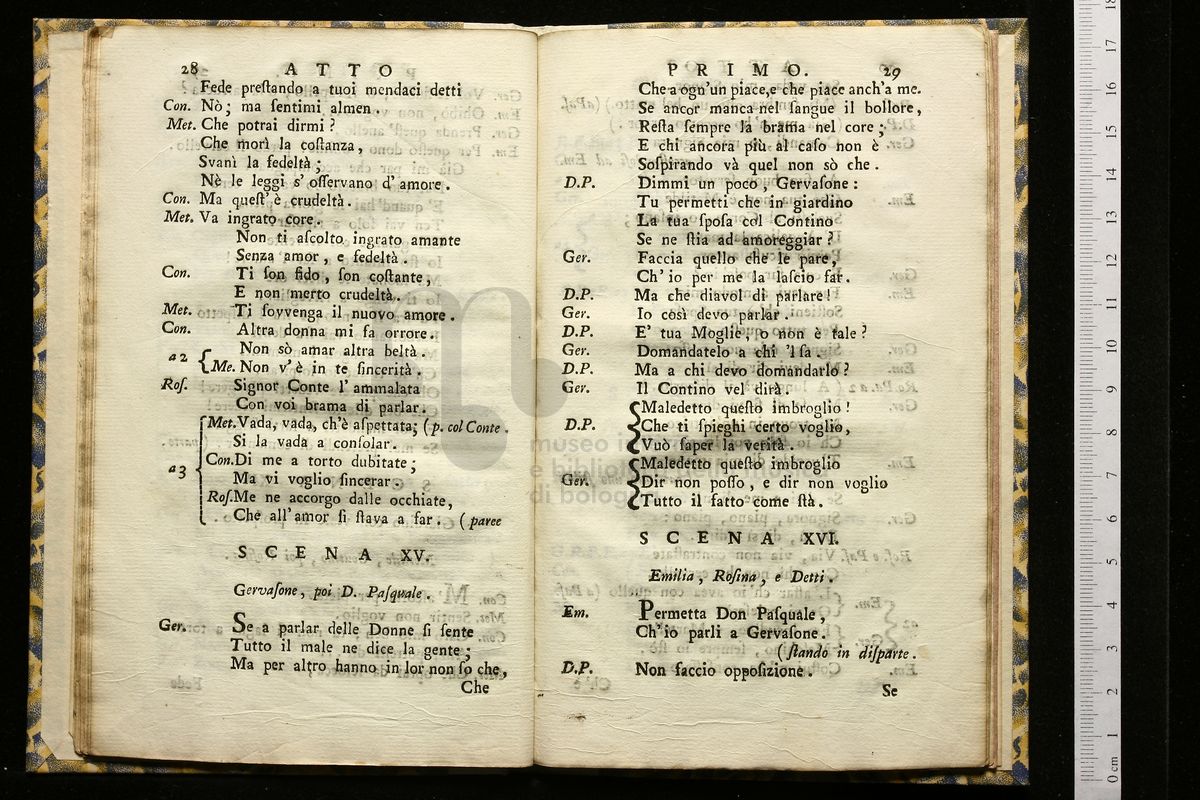 28 ATTO
Fede preſtando a tuoi mendaci detti
Con. Nò; ma ſentimi almen.
Met. Che potrai dirmi?
Che morì la coſtanza,
Svanì la fedeltà;
Nè le leggi s' oſſervano d' amore.
Con. Ma queſt' è crudeltà.
Met. Va ingrato core.
Non ti aſcolto ingrato amante
Senza amor, e fedeltà.
Con. Ti ſon fido, ſon coſtante,
E non merto crudeltà.
Met. Ti ſovvenga il nuovo amore.
Con. Altra donna mi fa orrore.
a 2 { Non sò amar altra beltà.
Me. Non v' è in te ſincerità.
Roſ. Signor Conte l' ammalata
Con voi brama di parlar.
Met. Vada, vada, ch'è aſpettata; (p. col Conte.
Si la vada a conſolar.
a 3 Con. Di me a torto dubitate;
Ma vi voglio ſincerar.
Roſ. Me ne accorgo dalle occhiate,
Che all' amor ſi ſtava a far. (paree
SCENA XV.
Gervaſone, poi D. Paſquale.
Ger. Se a parlar delle Donne ſi ſente
Tutto il male ne dice la gente;
Ma per altro hanno in lor non ſo che,
Che
PRIMO. 29
Che a ogn'un piace, e che piace anch'a me.
Se ancor manca nel ſangue il bollore,
Reſta ſempre la brama nel core;
E chi ancora più al caſo non è
Soſpirando và quel non sò che.
D.P. Dimmi un poco, Gervaſone:
Tu permetti che in giardino
La tua ſpoſa col Contino
Se ne ſtia ad amoreggiar?
Ger. Faccia quello che le pare,
Ch' io per me la laſcio far.
D.P. Ma che diavol di parlare!
Ger. Io così devo parlar.
D.P. E' tua Moglie, o non è tale?
Ger. Domandatelo a chi 'l ſa.
D.P. Ma a chi devo domandarlo?
Ger. Il Contino vel dirà.
Maledetto queſto imbroglio!
D.P. Che ti ſpieghi certo voglio,
Vuò ſaper la verità.
Maledetto queſto imbroglio
Ger. Dir non poſſo, e dir non voglio
Tutto il fatto come ſtà.
SCENA XVI.
Emilia, Roſina, e Detti.
Em. Permetta Don Paſquale,
Ch'io parli a Gervaſone.
(ſtando in diſparte.
D.P. Non faccio oppoſizione.
Se